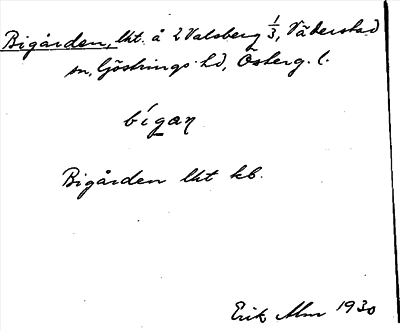 Bigården, lht. å 2 Valsberg 1/3, Väderstad
sn, Göstrings hd, Österg. l.
bígan
Bigården lht kb.
Erik Alm 1930